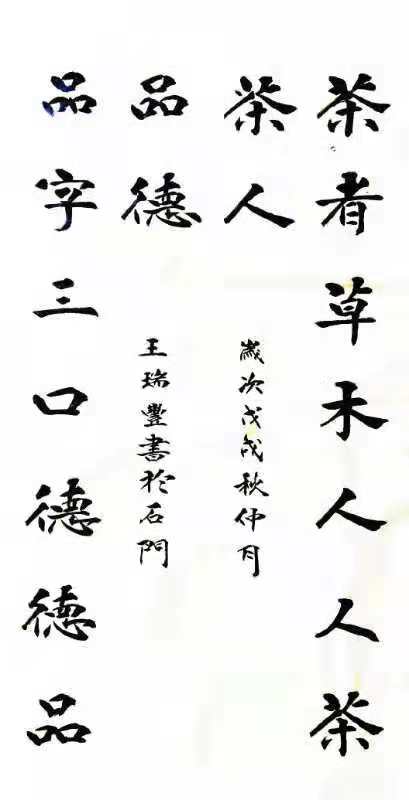 茶者草木人人茶
茶人
歲次戊戌秋仲月
品字三口德德品
品德
王瑞豐書於石門